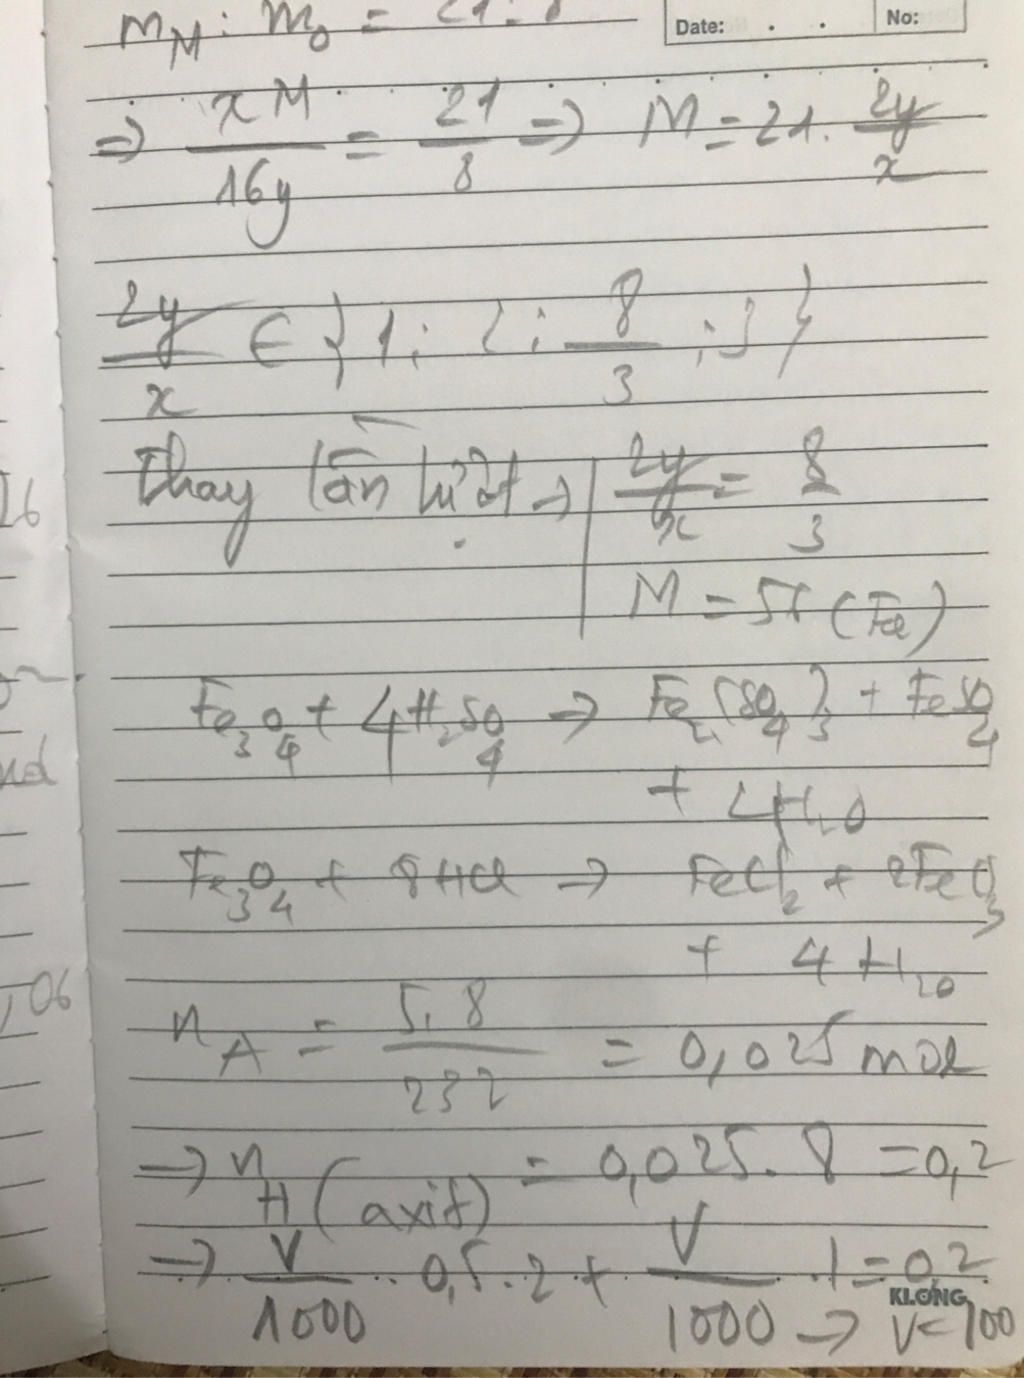 Date: . . No:
m_M : m_O = 21 : 8
=> xM/16y = 21/8 => M = 21. 2y/x
2y/x ∈ {1; 2; 8/3; 3}
Thay lần lượt => | 2y/x = 8/3
M = 56 (Fe)
Fe3O4 + 4H2SO4 => Fe2(SO4)3 + FeSO4
+ 4H2O
Fe3O4 + 8HCl -> FeCl2 + 2FeCl3
+ 4H2O
n_A = 5,8/232 = 0,025 mol
=> n_H (axit) = 0,025. 8 = 0,2
=> V/1000 . 0,5. 2 + V/1000 . 1 = 0,2
KLONG
-> V = 100
26
06